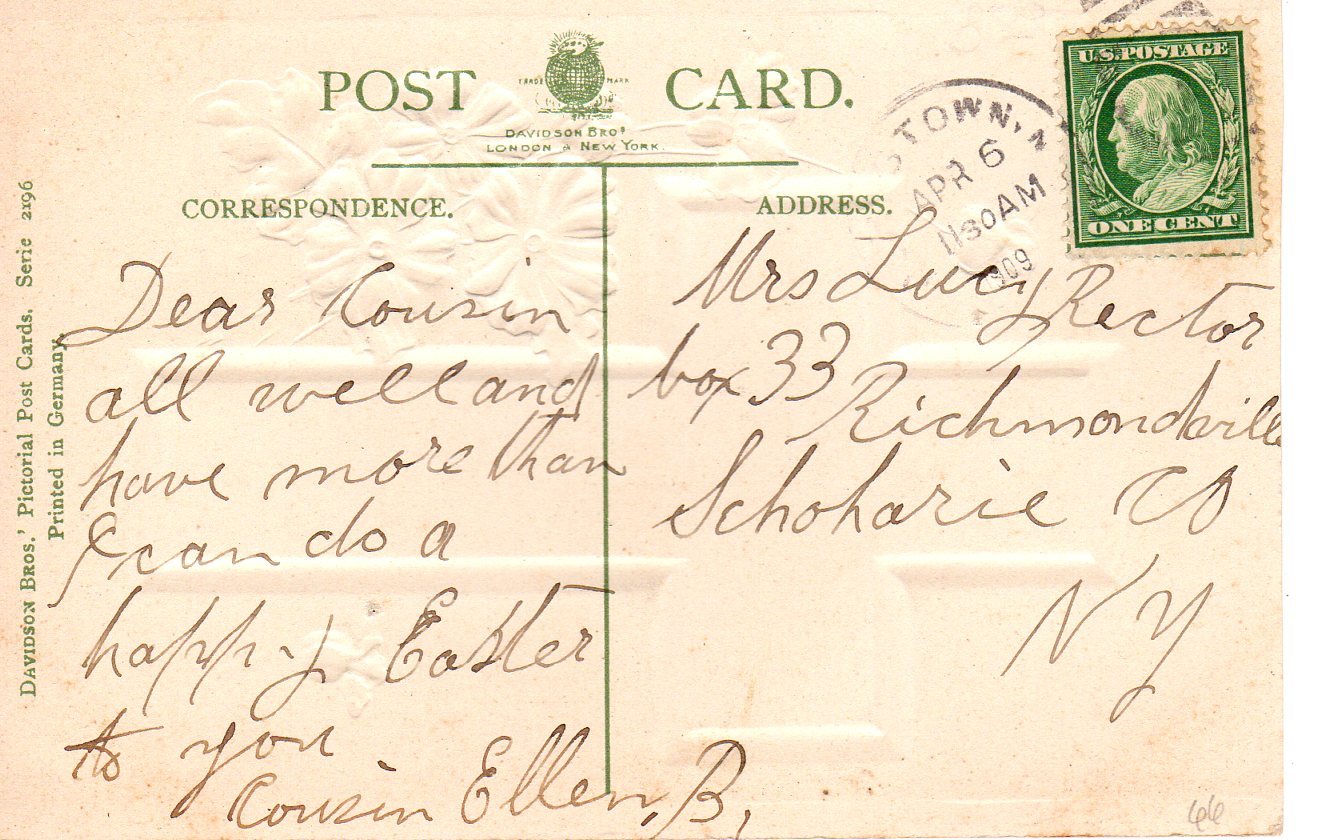 POST CARD.
TRADE MARK
DAVIDSON BROS
LONDON & NEW YORK.
CORRESPONDENCE.
ADDRESS.
DAVIDSON BROS.' Pictorial Post Cards. Serie 2196
Printed in Germany.
U.S. POSTAGE
ONE CENT
STOWN, N
APR 6
1130AM
1909
Dear Cousin
all well and
have more than
I can do a
happy Easter
to you
Cousin Ellen, B,
Mrs Lucy Rector
box 33 Richmondville
Schoharie CO
NY
66